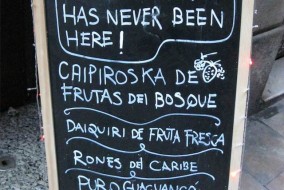 HAS NEVER BEEN
HERE!
CAIPIROSKA DE
FRUTAS DEl BOSQUE
DAIQUIRI DE FRUTA FRESCA
RONES DEl CARIBE
PURO GUAGUANCO